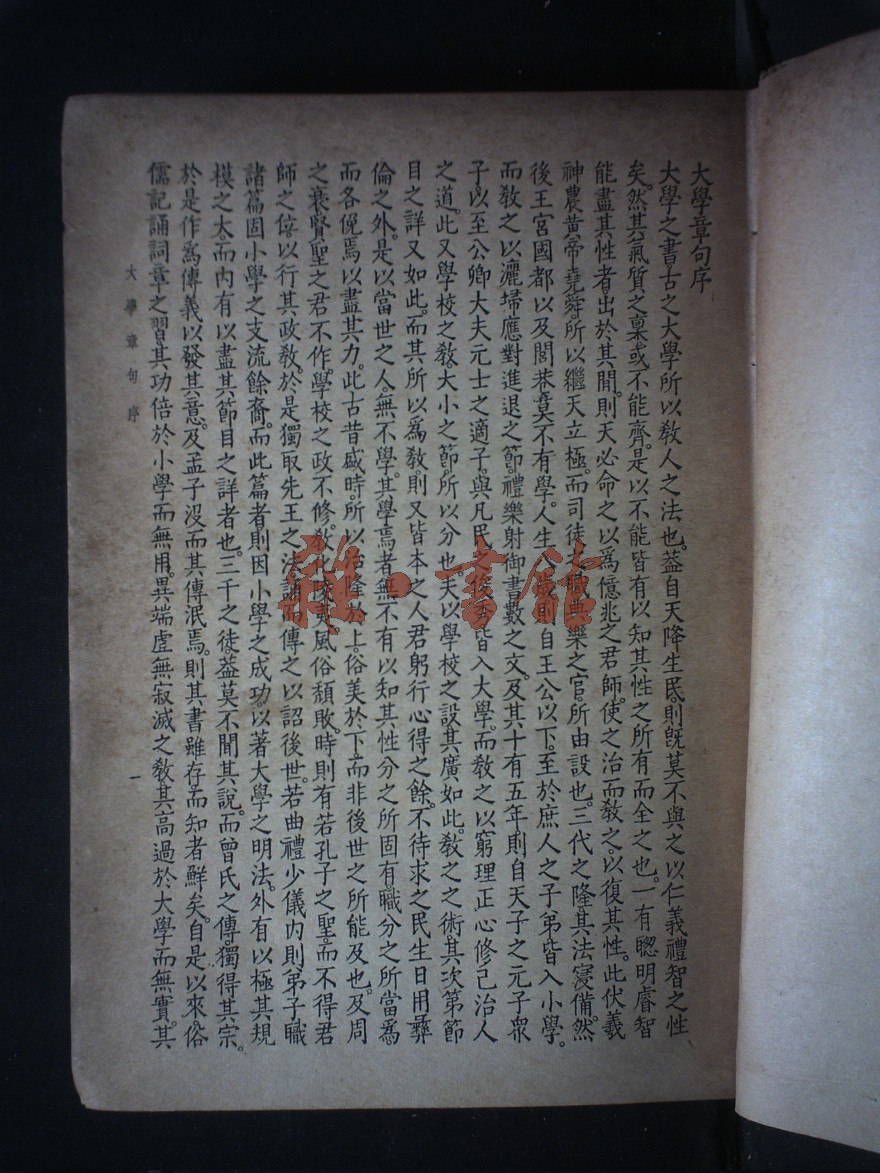 大學章句序
大學之書古之大學所以敎人之法也。蓋自天降生民。則旣莫不與之以仁義禮智之性
矣。然其氣質之稟或不能齊。是以不能皆有以知其性之所有而全之也。一有聰明睿智
能盡其性者出於其間。則天必命之以爲億兆之君師。使之治而敎之。以復其性。此伏羲
神農黃帝堯舜。所以繼天立極。而司徒之職典樂之官。所由設也。三代之隆其法寖備。然
後王宮國都以及閭巷。莫不有學。人生八歲則自王公以下。至於庶人之子弟。皆入小學。
而敎之以灑埽應對進退之節。禮樂射御書數之文。及其十有五年則自天子之元子衆
子。以至公卿大夫元士之適子。與凡民之俊秀皆入大學。而敎之以窮理正心修己治人
之道。此又學校之敎。大小之節。所以分也。夫以學校之設其廣如此。敎之之術其次第節
目之詳又如此。而其所以爲敎。則又皆本之人君躬行心得之餘。不待求之民生日用彝
倫之外。是以當世之人。無不學。其學焉者無不有以知其性分之所固有。職分之所當爲。
而各俛焉以盡其力。此古昔盛時。所以治隆於上。俗美於下。而非後世之所能及也。及周
之衰賢聖之君不作。學校之政不修。敎化陵夷。風俗頹敗。時則有若孔子之聖。而不得君
師之位。以行其政敎。於是獨取先王之法誦而傳之以詔後世。若曲禮少儀內則弟子職
諸篇固小學之支流餘裔。而此篇者則因小學之成功。以著大學之明法。外有以極其規
模之大。而內有以盡其節目之詳者也。三千之徒。蓋莫不聞其說。而曾氏之傳。獨得其宗。
於是作爲傳義以發其意。及孟子沒而其傳泯焉。則其書雖存。而知者鮮矣。自是以來俗
儒記誦詞章之習其功倍於小學而無用。異端虛無寂滅之敎。其高過於大學而無實。其
大學章句序
一
雅·書館